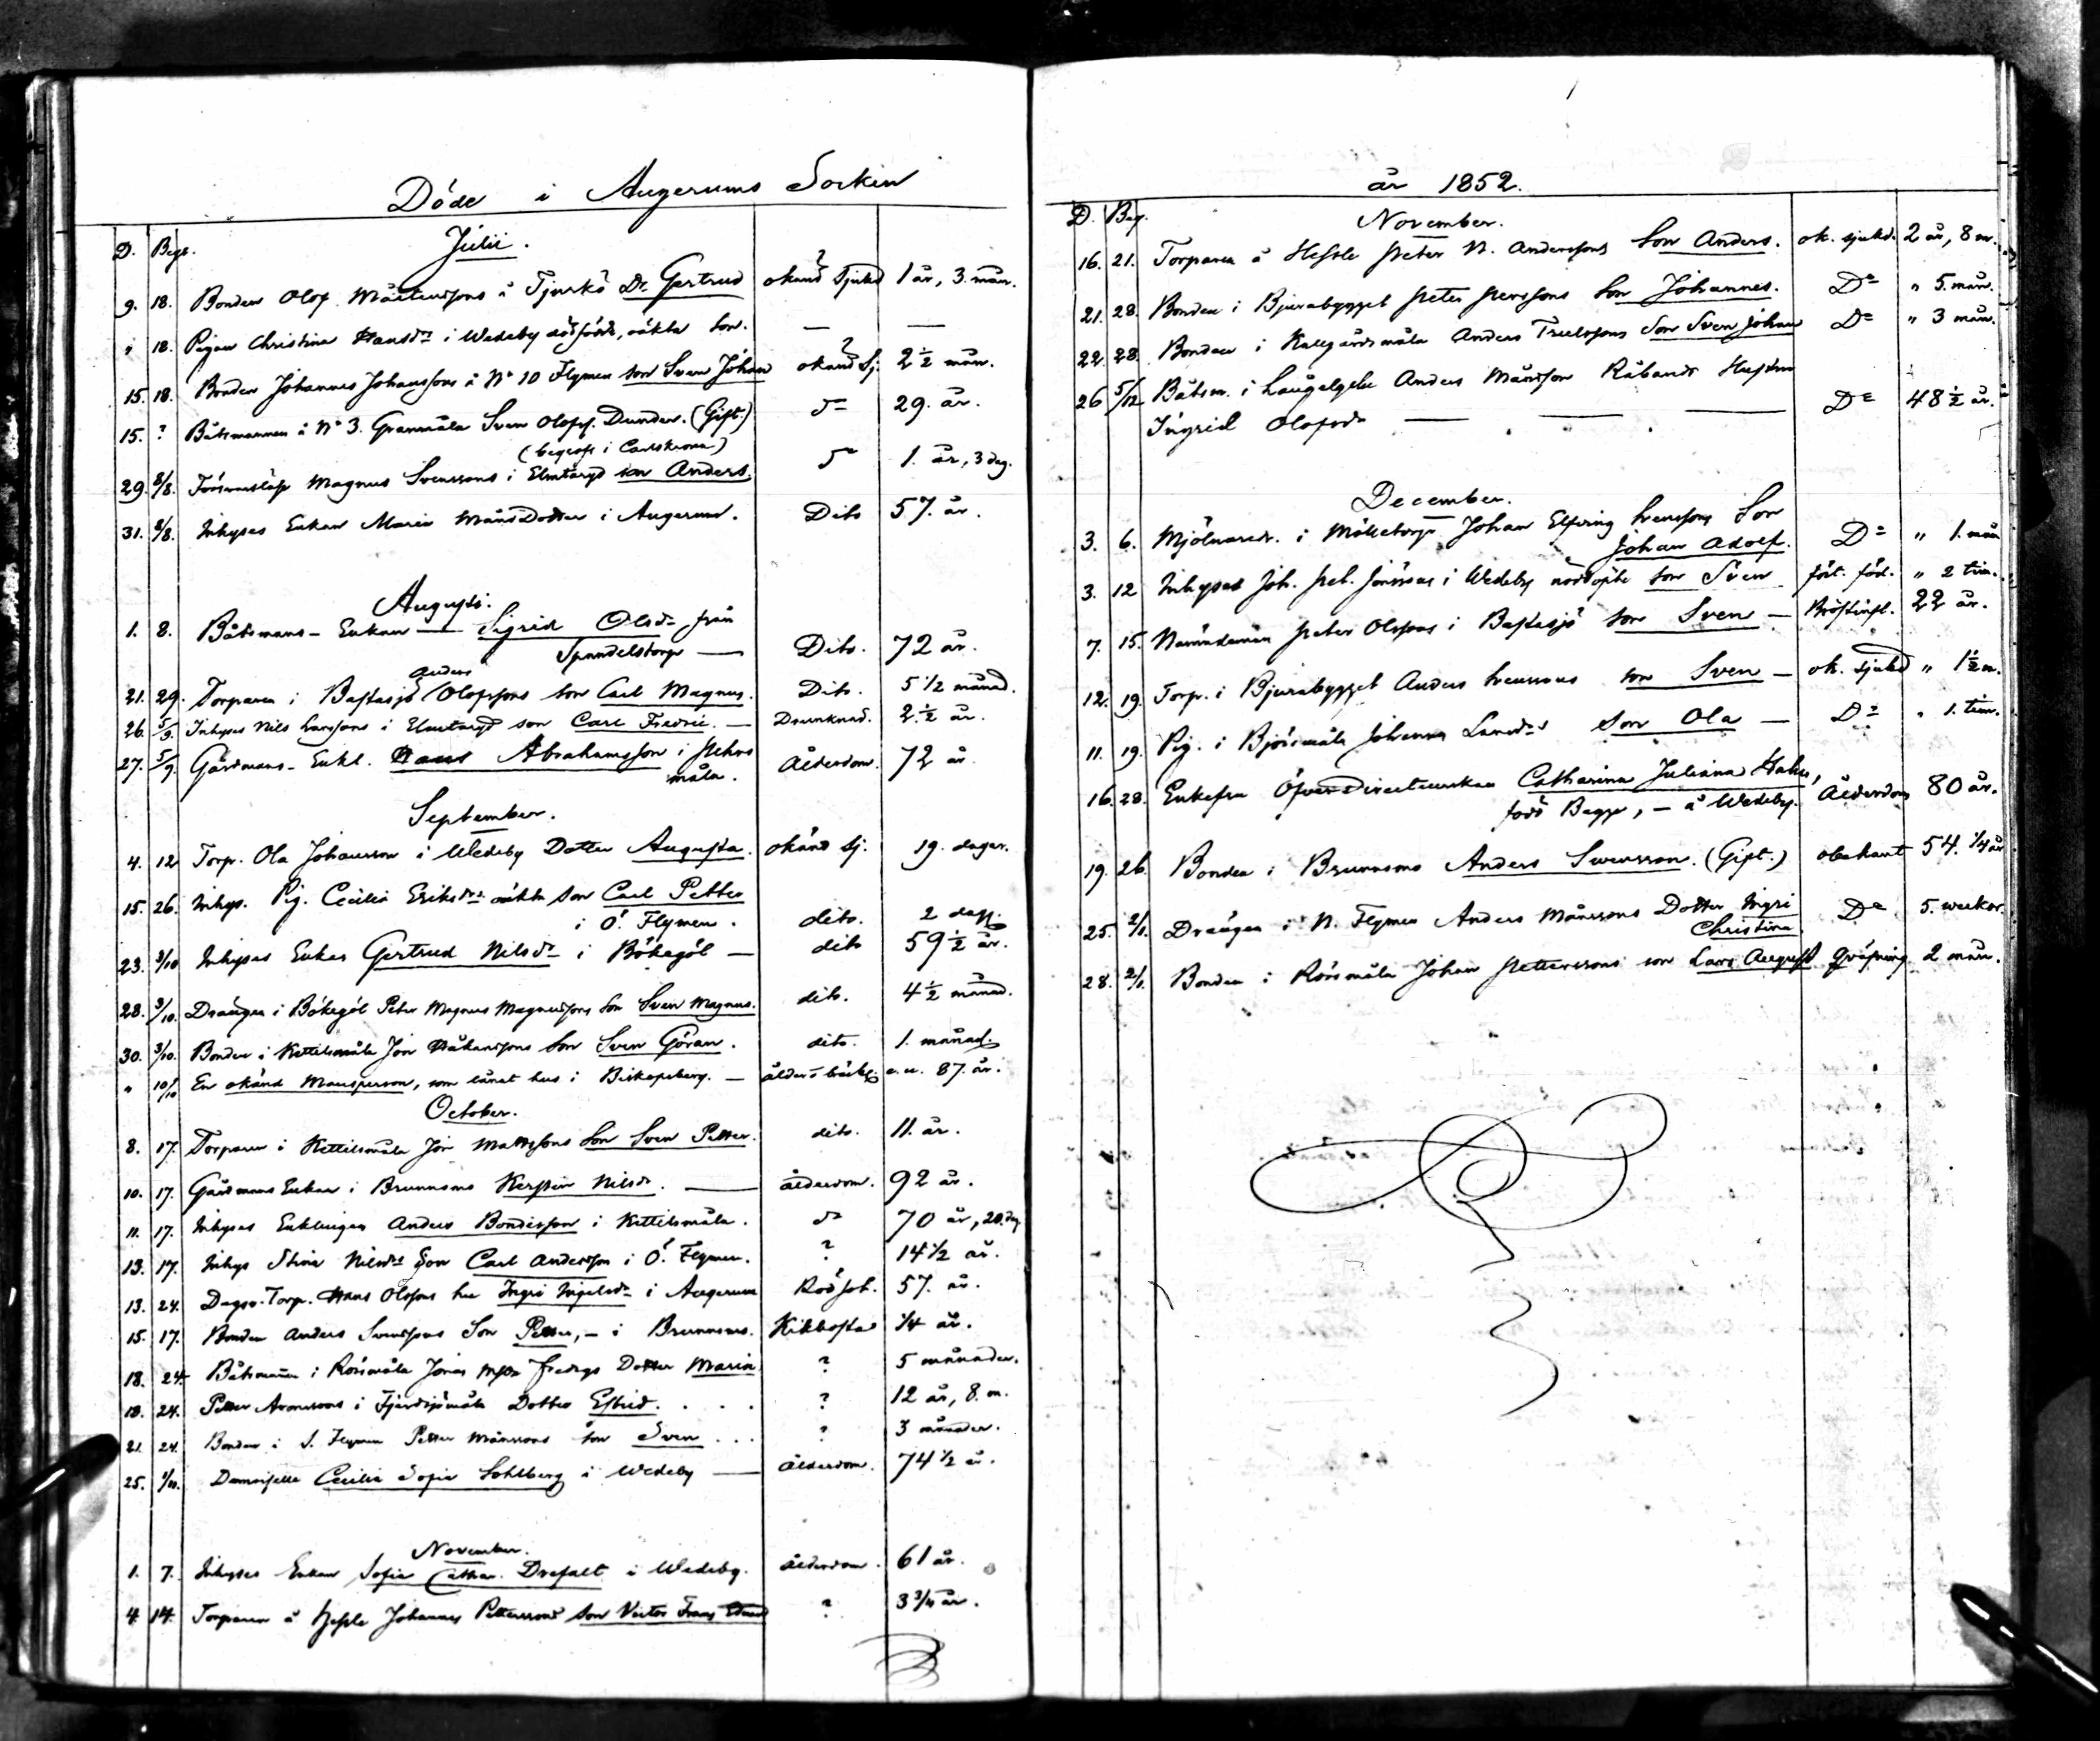 Döde i Augerums Sockin
D. Begr.
Julii.
9. 18. Bonden Olof Mårtenssons å Tjurkö Dr. Gertrud okänd Sjukd 1 år, 3. mån.
" 18. Pigan Christina Hansdr i Wedeby dödfödde, oäkta Son. — —
15. 18. Bonden Johannes Johanssons å No 10 Flymen son Sven Johan okänd Sj. 2 1/2 mån.
15. ? Båtsmannen å No 3. Granmåla Sven Olofss. Dunder. (Gift.) do 29. år.
(begrofs i Carlskrona)
29. 8/8. Magnus Svenssons i Elmtaryd son Anders do 1. år, 3 dag.
31. 8/8. Inhyses Enkan Maria MånsDotter i Augerum. Dito 57. år.
Augusti.
1. 8. Båtsmans-Enkan — Sigrid Olsdr från
Spandelstorp — Dito. 72 år.
Anders
21. 29. Torparen i Bastasjö Olofssons son Carl Magnus. Dito. 5 1/2 månad.
26. 5/9. Inhyses Nils Larssons i Elmtaryd son Carl Fredric. — Drunknad. 2 1/2 år.
27. 5/9. Gårdmans-Enkl. Hans Abrahamsson i Stehns
måla. Ålderdom. 72 år
September.
4. 12 Torp. Ola Johansson i Wedeby Dotter Augusta. okänd Sj. 19. dagar.
15. 26. Inhys. Pig. Cecilia Eriksdrs oäkta son Carl Petter
i Ö. Flymen. dito. 2 dagr
23. 3/10 Inhyses Enkan Gertrud Nilsdr i Bökegöl — dito 59 1/2 år.
28. 3/10. Drängen i Bökegöl Peter Magnus Magnussons Son Sven Magnus. dito. 4 1/2 månad.
30. 3/10. Bonden i Kettilsmåla Jon Håkanssons Son Sven Göran. dito. 1. månad.
" 10/10 En okänd Mansperson, som lånat hus i Biskopsberg. — ålders bräckl. c. a. 87. år.
October.
8. 17. Torparen i Kettilsmåla Jon Mattssons Son Sven Petter. dito. 11. år.
10. 17. Gårdmans Enkan i Brunnsmo Kerstin Nilsdr. — ålderdom. 92 år.
11. 17. Inhyses Enklingen Anders Bondesson i Kettilsmåla. do 70 år, 20. dag
13. 17. Inhys Stina Nilsdrs Son Carl Andersson i Ö. Flymen. ? 14 1/2 år.
13. 24. Dagsv. Torp. Hans Olssons hu Ingri Ingelsdr i Augerum Rödsot. 57. år.
15. 17. Bonden Anders Svenssons Son Petter, — i Brunnsmo. Kikhosta 1/4 år.
18. 24. Båtsmannen i Rörsmåla Jonas Dotter Maria ? 5 månader.
18. 24. Petter Aronssons i Fjärdsjömåla Dotter Estrid. . . . ? 12 år, 8. m.
21. 24. Bonden i S. Flymen Petter Månssons son Sven . . . ? 3 månader.
25. 1/11. Demoiselle Cecilia Sofia Sohlberg i Wedeby — ålderdom. 74 1/2 år.
November.
1. 7. Inhyses Enkan Sofia Cathar. Drefalt i Wedeby. ålderdom. 61 år.
4 14. Torparen å Hessle Johannes Petterssons son Victor Frans Eduard ? 3 3/4 år.
år 1852.
D. Beg.
November.
16. 21. Torparen å Hessle Peter N. Anderssons Son Anders. ok. sjukd. 2 år, 8 m.
21. 28. Bonden i Bjurabygget Peter Perssons Son Johannes. Do " 5. mån.
22 28. Bonden i Kallgårdsmåla Anders Truelssons Son Sven Johan Do " 3 mån.
26 5/12 Båtsm. i Anders Månsson Råbands Hustru
Ingrid Olofsdr — — — Do 48 1/2 år.
December.
3. 6. Mjölnaredr. i Mölletorp Johan Elfving Svenssons Son
Johan Adolf. Do " 1. mån
3. 12 Inhyses Joh. Pet. Jönssons i Wedeby nöddöpte son Sven fört. föd. " 2 tim.
7. 15. Nämndeman Peter Olssons i Bastasjö son Sven — Bröstinfl. 22 år.
12. 19. Torp. i Bjurabygget Anders Svenssons son Sven — ok. sjukd " 1 1/2 m.
11. 19. Pig. i Björsmåla Johanna Larsdrs Son Ola — Do " 1. tim.
16. 28. Enkefru ÖfverDirecteurskan Catharina Juliana Hahn,
född Bagge, — å Wedeby. Ålderdom 80 år.
19. 26. Bonden i Brunnsmo Anders Swensson. (Gift.) obekant 54. 1/4 år
25. 2/1. Drängen i N. Flymen Anders Månssons Dotter Ingri
Christina. Do 5. weckor.
28. 2/1. Bonden i Rörsmåla Johan Petterssons son Lars August Qväfning 2 mån.